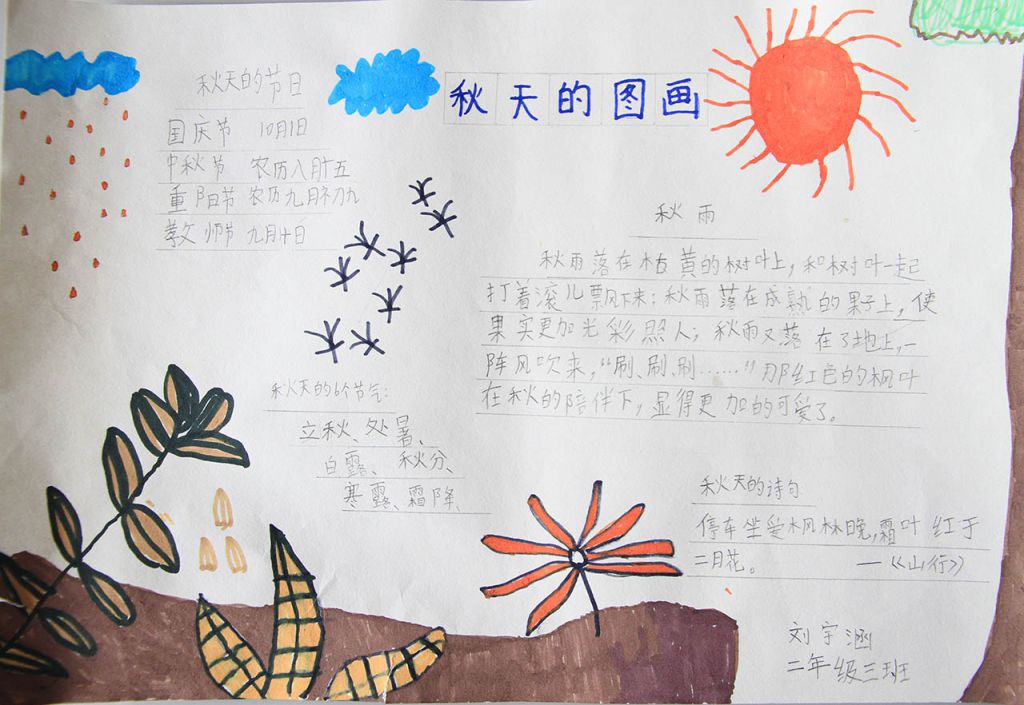 秋天的图画
秋天的节日
国庆节 10月1日
中秋节 农历八月十五
重阳节 农历九月初九
教师节 九月十日
秋雨
秋雨落在枯黄的树叶上，和树叶一起
打着滚儿飘下来；秋雨落在成熟的果子上，使
果实更加光彩照人；秋雨又落在了地上，一
阵风吹来，“刷、刷、刷……”那红色的枫叶
在秋的陪伴下，显得更加的可爱了。
秋天的6个节气：
立秋、处暑、
白露、秋分、
寒露、霜降、
秋天的诗句
停车坐爱枫林晚，霜叶红于
二月花。 —《山行》
刘宇涵
二年级三班